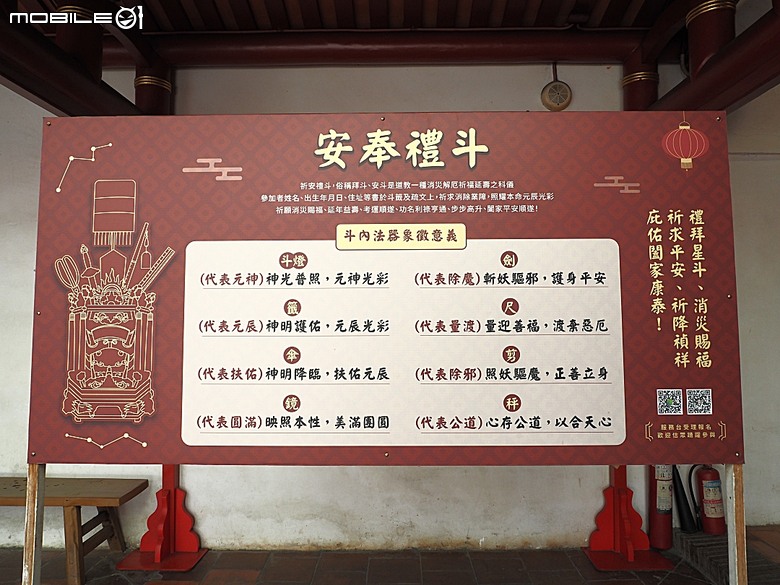 MOBILE01
安奉禮斗
祈安禮斗，俗稱拜斗、安斗是道教一種消災解厄祈福延壽之科儀
參加者姓名、生辰年月日、住址等書於斗籤及疏文上，祈求消除業障，照耀本命元辰光彩
祈願消災賜福、延年益壽、考運順遂、功名利祿亨通、步步高升、闔家平安順遂！
斗內法器象徵意義
斗燈
(代表元神) 神光普照，元神光彩
籤
(代表元辰) 神明護佑，元辰光彩
傘
(代表扶佑) 神明降臨，扶佑元辰
鏡
(代表圓滿) 映照本性，美滿團圓
劍
(代表除魔) 斬妖驅邪，護身平安
尺
(代表量渡) 量迎善福，渡棄惡厄
剪
(代表除邪) 照妖驅魔，正善立身
秤
(代表公道) 心存公道，以合天心
禮拜星斗、消災賜福
祈求平安、祈降禎祥
庇佑闔家康泰！
服務台受理報名
歡迎信眾踴躍參與